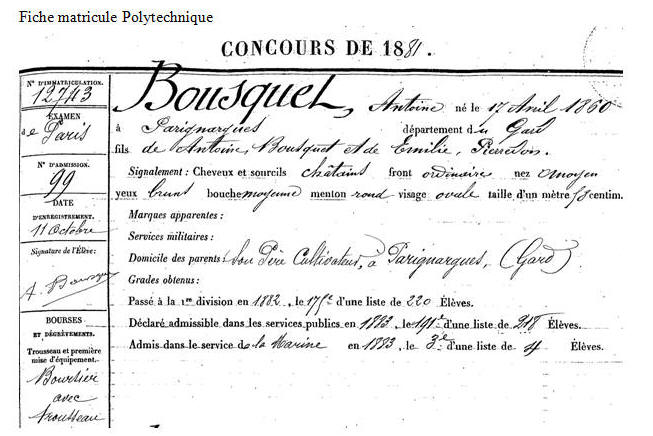 Fiche matricule Polytechnique
CONCOURS DE 1881.
N° D'IMMATRICULATION.
12743
EXAMEN
de Paris
N° D'ADMISSION.
99
DATE
D'ENREGISTREMENT.
11 Octobre
Signature de l'Élève:
A. Bousquet
BOURSES
ET DÉGRÈVEMENTS.
Trousseau et première
mise d'équipement.
Boursier
avec
trousseau
Bousquet, Antoine né le 17 Avril 1860
à Parignargues département du Gard
fils de Antoine, Bousquet et de Emilie,
Signalement : Cheveux et sourcils châtains front ordinaire nez moyen
yeux bruns bouche moyenne menton rond visage ovale taille d'un mètre 58 centim.
Marques apparentes :
Services militaires :
Domicile des parents : Son Père Cultivateur, à Parignargues, (Gard)
Grades obtenus :
Passé à la 1re division en 1882, le 175e d'une liste de 220 Élèves.
Déclaré admissible dans les services publics en 1883, le 191e d'une liste de 218 Élèves.
Admis dans le service de la Marine en 1883, le 3e d'une liste de 4 Élèves.